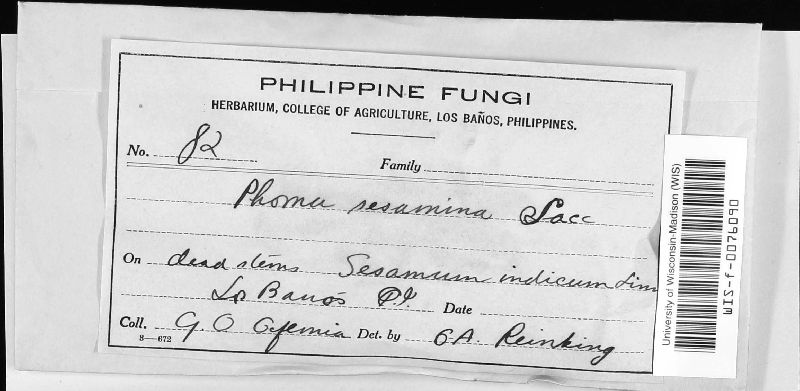 PHILIPPINE FUNGI
HERBARIUM, COLLEGE OF AGRICULTURE, LOS BAÑOS, PHILIPPINES.
No. 82 Family
Phoma sesamina Sacc
On dead stems Sesamum indicum Linn
Los Baños P.I. Date
Coll. G. O. Ofemia Det. by O A. Reinking
S—672
University of Wisconsin-Madison (WIS)
WIS-f-0076090